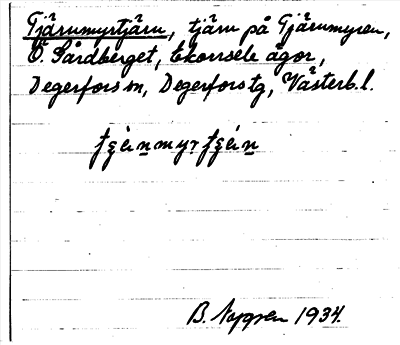 Tjärnmyrtjärn, tjärn på Tjärnmyren,
Ö. Gårdberget, Ekorrsele ägor,
Degerfors sn, Degerfors tg, Västerb. l.
B. Nygren 1934.